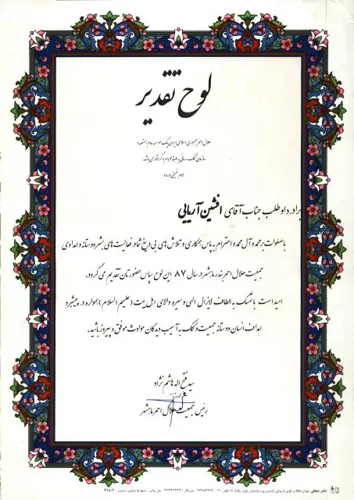 لوح تقدیر
هلال احمر جمهوری اسلامی ایران یک موسسه عام المنفعه
امام خمینی (ره)
برادر داوطلب جناب آقای افشین آریایی
با صلوات بر محمد و آل محمد و احترام به پاس همکاری و تلاش های بی دریغ شما در فعالیت های بشردوستانه و امدادی
جمعیت هلال احمر بندر ماهشهر در سال ۸۷ این لوح سپاس حضورتان تقدیم می گردد.
امید است با تمسک به الطاف لایزال الهی و سیره والای اهل بیت (علیهم السلام) همواره در پیشبرد
اهداف انسان دوستانه جمعیت و کمک به آسیب دیدگان حوادث موفق و پیروز باشید.
سید فتح اله هاشم نژاد
رئیس جمعیت هلال احمر ماهشهر